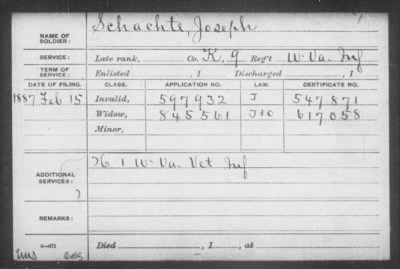 NAME OF SOLDIER: Schachte, Joseph
SERVICE: Late rank, Co. K, 9 Reg't W. Va. Inf
TERM OF SERVICE: Enlisted , 1 Discharged , 1
DATE OF FILING. CLASS. APPLICATION NO. LAW. CERTIFICATE NO.
1887 Feb 15 Invalid, 597932 J 547871
Widow, 845561 617058
Minor,
ADDITIONAL SERVICES: 1 W. Va. Vet Inf
REMARKS:
Died , 1 , at